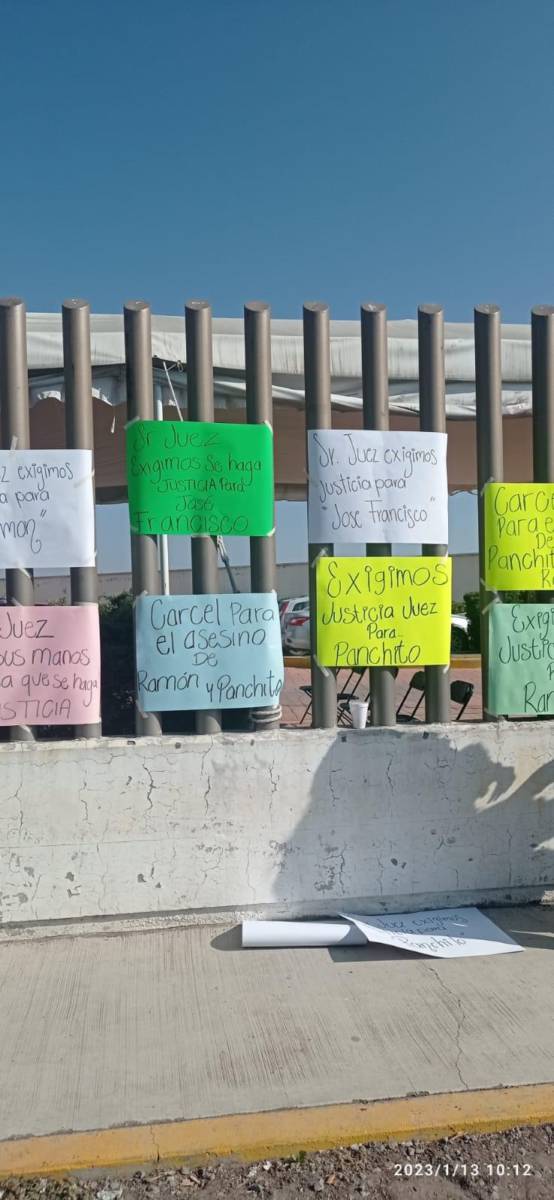 exigimos
para
Sr Juez
Exigimos Se haga
JUSTICIA Para
José
Francisco
Sr. Juez exigimos
Justicia para
"Jose Francisco"
Para
De
Juez
manos
que se haga
JUSTICIA
Carcel Para
el asesino
DE
Ramón y Panchito
Exigimos
Justicia Juez
Para
Panchito
Juez exigimos
Panchito"
2023/1/13 10:12